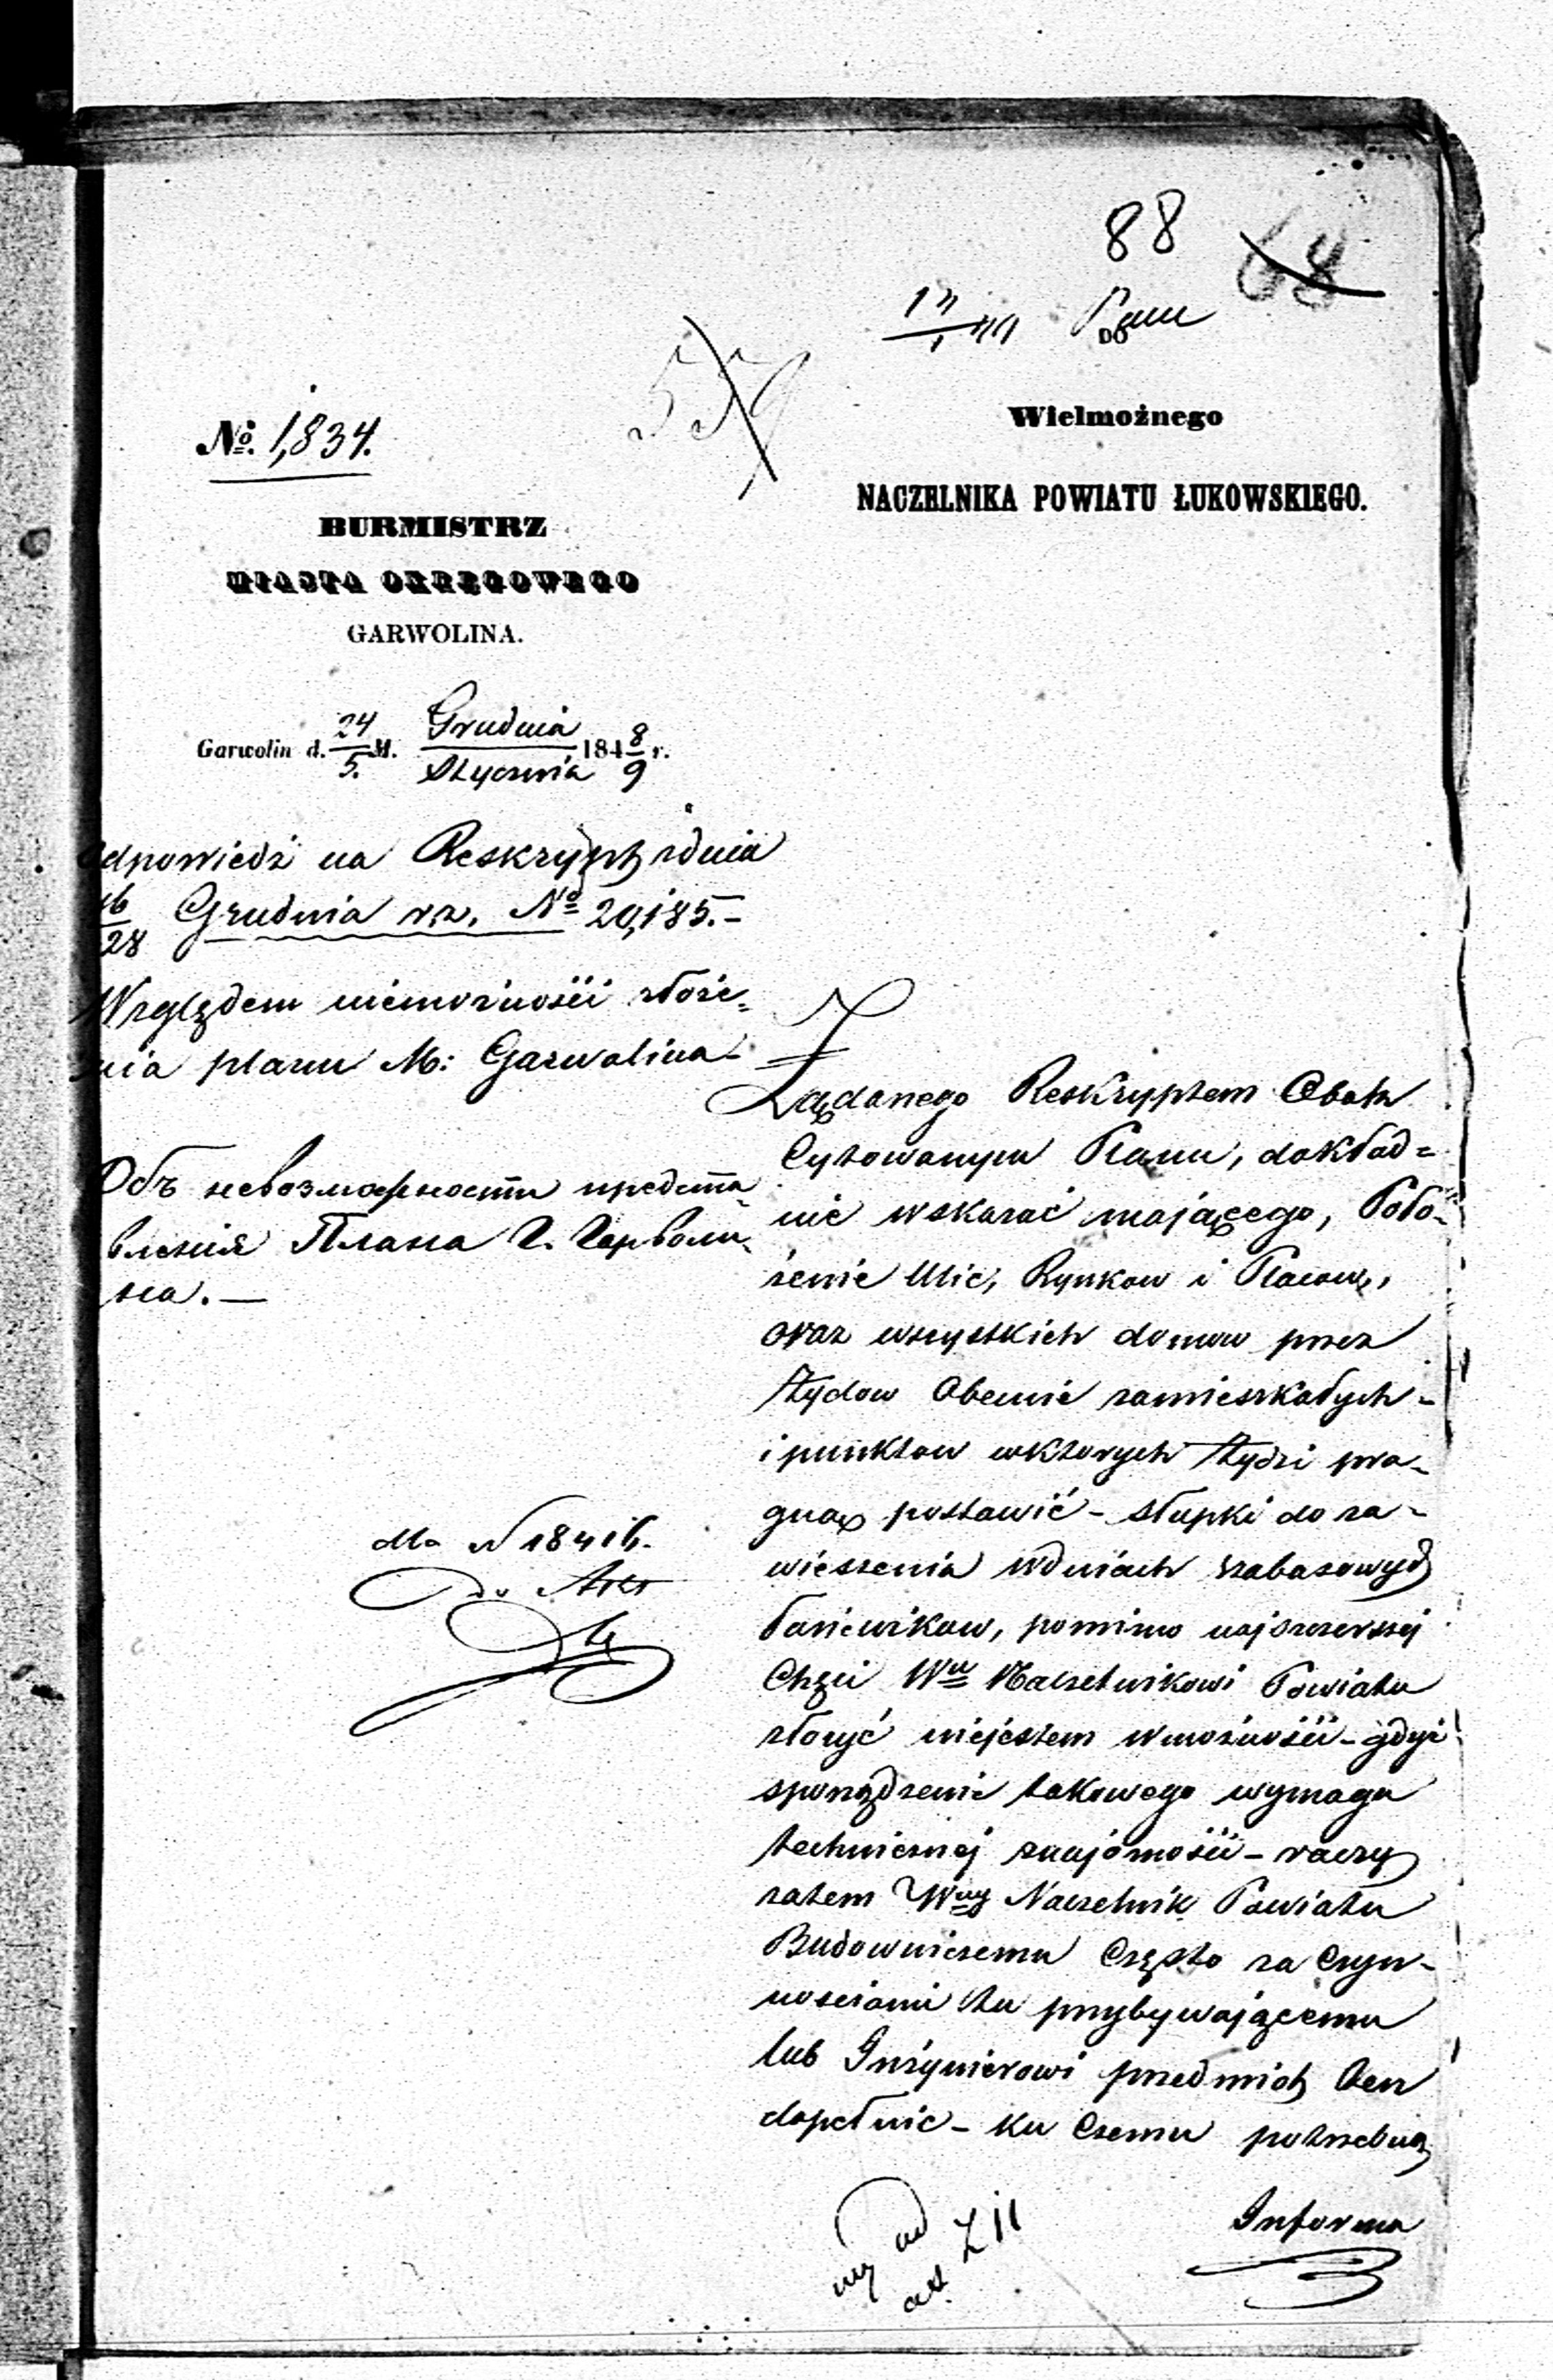 88
68
Panu
DO
Wielmożnego
NACZELNIKA POWIATU ŁUKOWSKIEGO.
559
No. 1,834.
BURMISTRZ
MIASTA OKRĘGOWEGO
GARWOLINA.
Garwolin d. 24/5. M. Grudnia/Stycznia 184 8/9 r.
Odpowiedź na Reskrypt zdnia
16/28 Grudnia r.z. No 20,185.-
Względem niemożności złoże=
nia planu M: Garwolina-
Объ невозможности предста
вленія Плана Г. Гарволи-
на.—
do Akt
Żądanego Reskryptem Obok
Cytowanym Planu, dokład=
nie wskazać mającego, Poło-
żenie Ulic, Rynkow i Placow,
oraz wszystkich domow przez
Żydow Obecnie zamieszkałych-
i punktow wktorych Żydzi pra-
gną postawić - słupki do za-
wieszenia wdniach szabasowych
łańcuszkow, pomimo najszczerszej
Chęci Wu Naczelnikowi Powiatu
złożyć niejestem wmożności - gdyż
sporządzenie takowego wymaga
technicznej znajomości - raczy
zatem Wny Naczelnik Powiatu
Budowniczemu Często za Czyn-
nościami tu przybywającemu
lub Inżynierowi przedmiot ten
dopełnić - ku Czemu potrzebną
Informa